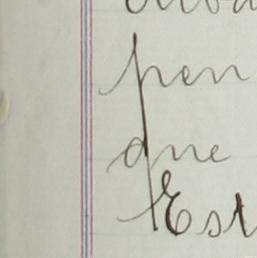 pen
que
Est